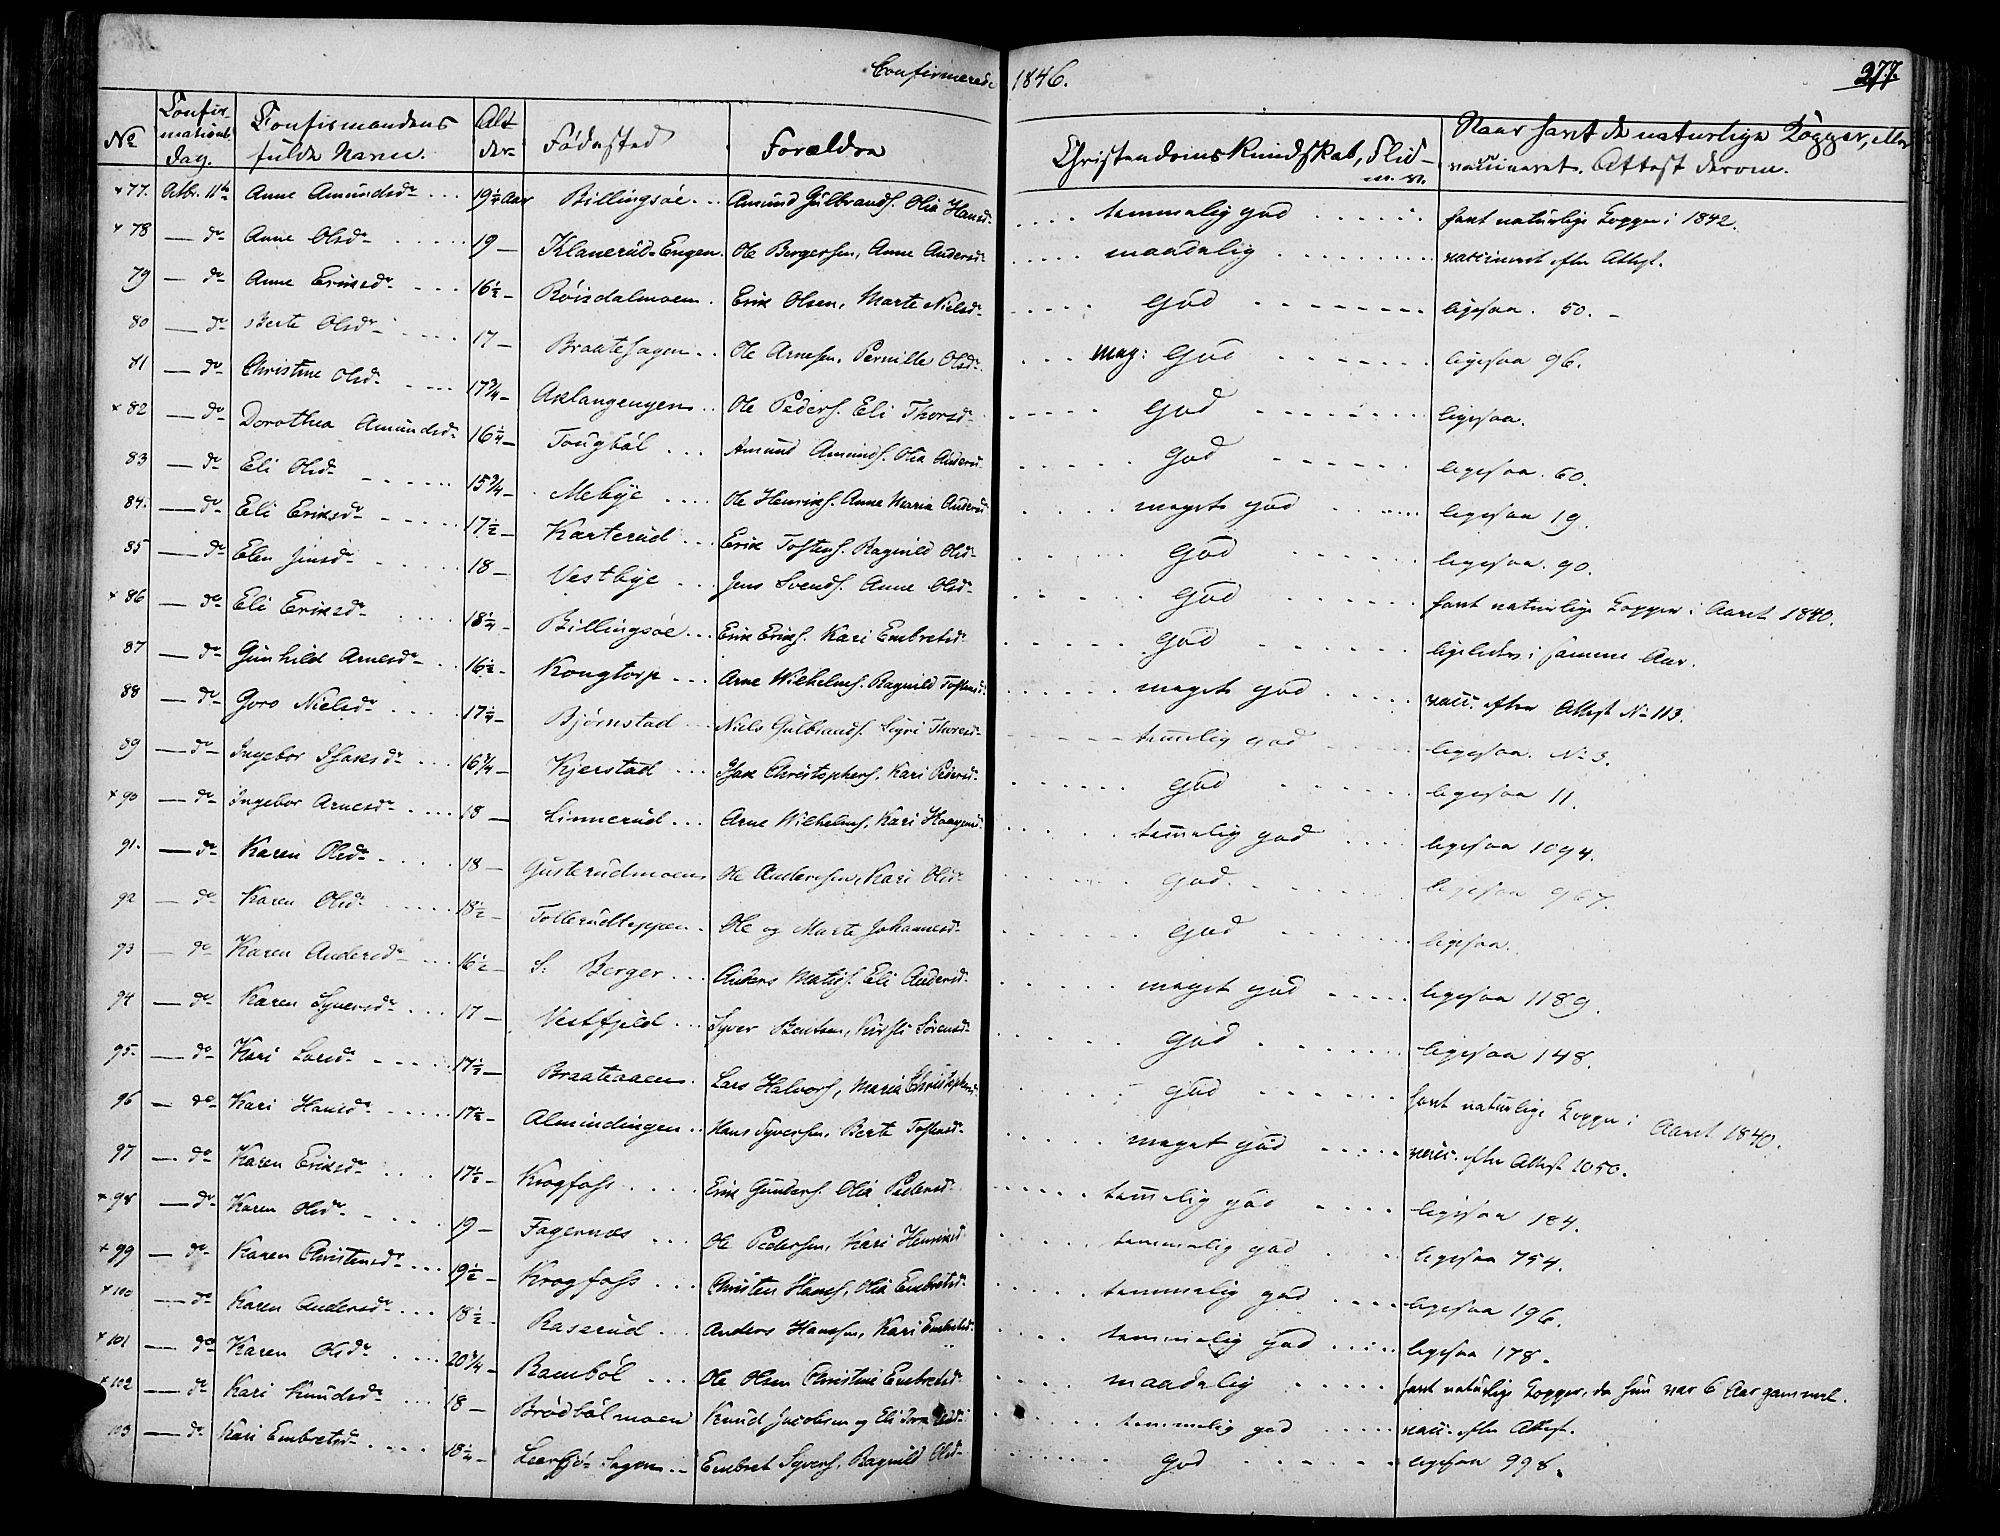 Confirmerede 1846. 277.
No Confirmations dag. Confirmandens fulde Navn. Alder Fødested Forældre Christendoms Kundskab, Flid m. v. Naar havt de naturlige Kopper, eller vaccineret. Attest derom.
+ 77. Octbr. 11te Anne Amundsdr 19 1/4 Aar Billingsøe Amund Gulbrands. Olia Hansd. temmelig god havt naturlige Kopper i 1842.
+ 78 — do Anne Olsdr 19 — Klanerud-Engen. Ole Bergersen, Anne Andersdr maadelig vaccineret efter Attest.
79 — do Anne Eriksdr 16 1/2 — Røisdalmoen. Erik Olsen, Marte Nielsdr God ligesaa. 50. —
80 — do Berte Olsdr 17 — Braatehagen Ole Arnesen, Pernille Olsdr. Meg: God ligesaa 96.
81 — do Christine Olsdr 17 3/4 — Aslangengen Ole Peders. Eli Thorsdr God ligesaa.
+ 82 — do Dorothea Amundsdr 16 1/4 — Tougbøl Amund Amunds. Olia Andersd God ligesaa. 60.
83 — do Eli Olsdr 15 3/4 — Mebye Ole Henriks. Anne Maria Andersd meget god ligesaa 19.
84. — do Eli Eriksdr 17 1/2 — Karterud Erik Tostens. Ragnild Olsdr God ligesaa. 90.
85 — do Elen Jensdr 18 — Vestbye Jens Svends. Anne Olsdr God havt naturlige Kopper i Aaret 1840.
+ 86 — do Eli Eriksdr 18 1/4 — Billingsøe Erik Eriks. Kari Embretsdr God ligeledes i samme Aar.
87 — do Gunhild Arnesdr 16 1/2 — Kongtorp Arne Wilhelms. Ragnild Tostensd meget god vacc. efter Attest No 113.
88 — do Goro Nielsdr 17 1/4 — Bjørnstad Niels Gulbrands. Sigri Thoresdr temelig god ligesaa. No 3.
89 — do Ingebor Isaksdr 16 3/4 — Kjerstad Isak Christophers. Kari Pedersd. God ligesaa 11.
+ 90 — do Ingebor Arnesdr 18 — Linnerud Arne Wilhelms. Kari Haagensd temelig god ligesaa 1094.
91. — do Karen Olsdr 18 — Gusterudmoen Ole Andersen, Kari Olsdr God. ligesaa 967.
92 — do Karen Olsdr 18 1/2 — Tollerudteppen. Ole og Marte Johannesdr God ligesaa.
93 — do Karen Andersdr 16 1/2 — S: Berger Anders Mathis. Eli Andersdr. meget god ligesaa 1189.
94 — do Karen Syversdr 17 — Vestfjeld Syver Bentsen, Kirsti Sørensdr God ligesaa 148.
95. — do Kari Larsdr 17 1/2 — Braateaaen. Lars Halvors, Maria Christophersd God havt naturlige Kopper i Aaret 1840.
96 — do Kari Hansdr 17 1/2 — Almindingen Hans Syversen, Berte Tostensdr meget god vacc. efter Attest 1050.
97 — do Karen Eriksdr 17 1/2 — Krogfoss Erik Gunders. Olia Pedersdr temelig god ligesaa 184.
+ 98 — do Karen Olsdr 19 — Fagernæs Ole Pedersen, Kari Henriksd temmelig god ligesaa 754.
+ 99 — do Karen Christensdr 19 1/2 — Krogfoss Christen Hans., Olia Embretsdr temmelig god ligesaa 196.
+ 100 — do Karen Andersdr 18 1/2 — Raserud Anders Hansen, Kari Embretsdr temmelig god ligesaa 178.
+ 101 — do Karen Olsdr 20 3/4 — Rambøl Ole Olsen Christine Embretsdr maadelig havt naturlige Kopper, da hun var 6 Aar gammel.
+ 102 — do Kari Knudsdr 18 — Brødbølmoen Knud Jacobsen og Eli temmelig god vacc. efter Attest.
103 — do Kari Embretsdr 18 1/4 — Leersjø-Sagen Embret Syvers. Ragnild Olsdr God ligesaa 998.